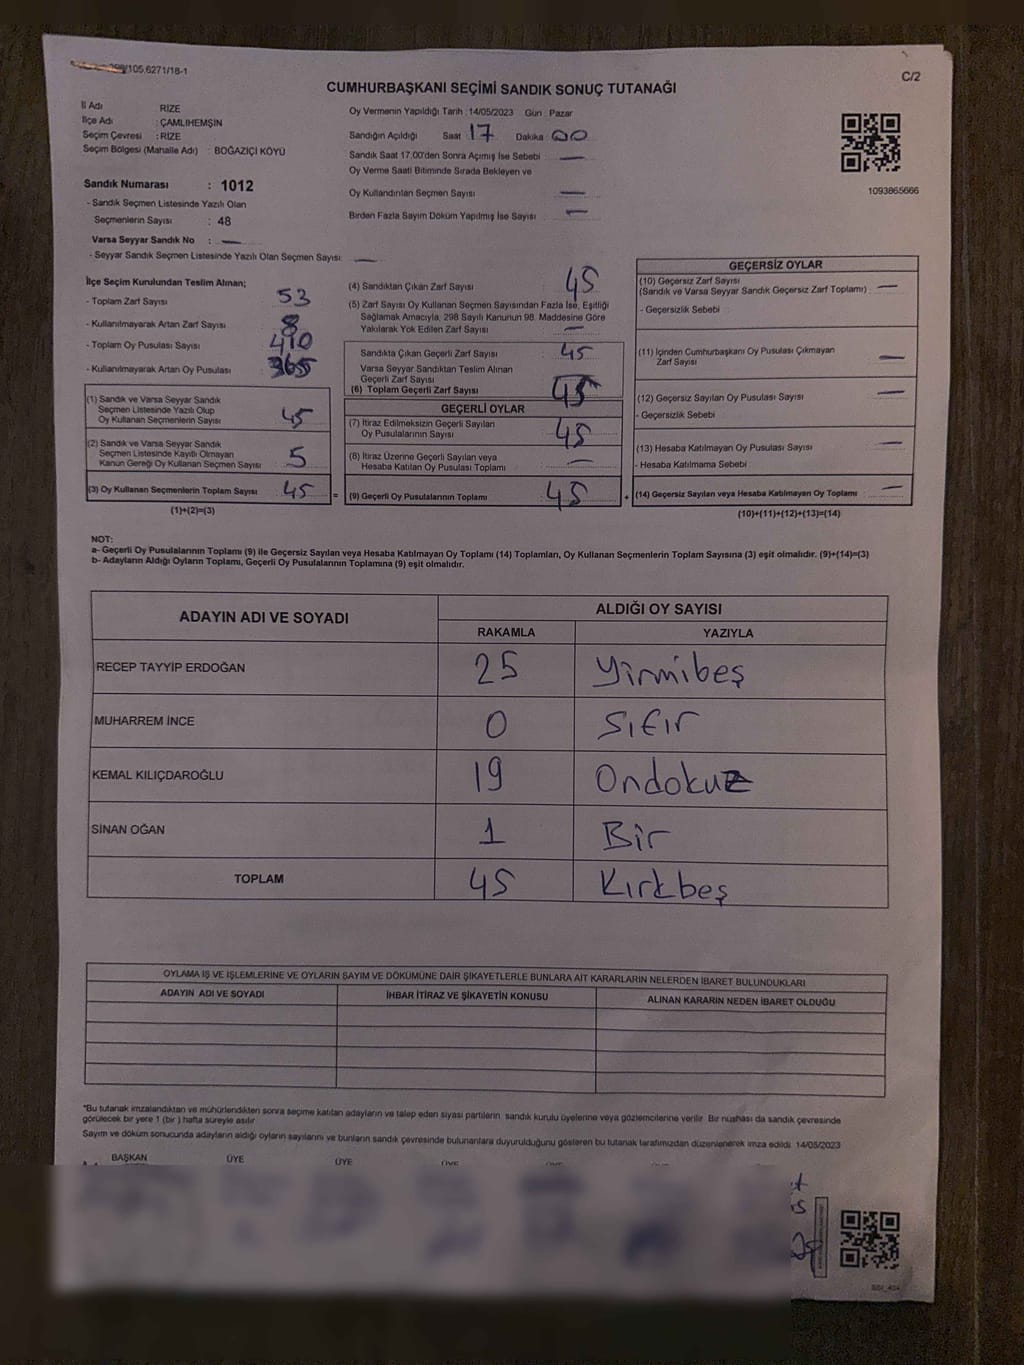 /105.6271/18-1
C/2
CUMHURBAŞKANI SEÇİMİ SANDIK SONUÇ TUTANAĞI
İl Adı : RİZE
İlçe Adı : ÇAMLIHEMŞİN
Seçim Çevresi : RİZE
Seçim Bölgesi (Mahalle Adı) : BOĞAZİÇİ KÖYÜ
Sandık Numarası : 1012
- Sandık Seçmen Listesinde Yazılı Olan
Seçmenlerin Sayısı : 48
Varsa Seyyar Sandık No : —
- Seyyar Sandık Seçmen Listesinde Yazılı Olan Seçmen Sayısı: —
Oy Vermenin Yapıldığı Tarih :14/05/2023 Gün : Pazar
Sandığın Açıldığı Saat 17 Dakika 00
Sandık Saat 17.00'den Sonra Açımış İse Sebebi : —
Oy Verme Saati Bitiminde Sırada Bekleyen ve
Oy Kullandırılan Seçmen Sayısı : —
Birden Fazla Sayım Döküm Yapılmış İse Sayısı : —
1093865666
İlçe Seçim Kurulundan Teslim Alınan;
- Toplam Zarf Sayısı : 53
- Kullanılmayarak Artan Zarf Sayısı : 8
- Toplam Oy Pusulası Sayısı : 410
- Kullanılmayarak Artan Oy Pusulası : 365
(1) Sandık ve Varsa Seyyar Sandık
Seçmen Listesinde Yazılı Olup
Oy Kullanan Seçmenlerin Sayısı : 45
(2) Sandık ve Varsa Seyyar Sandık
Seçmen Listesinde Kayıtlı Olmayan
Kanun Gereği Oy Kullanan Seçmen Sayısı : 5
(3) Oy Kullanan Seçmenlerin Toplam Sayısı : 45
(1)+(2)=(3)
(4) Sandıktan Çıkan Zarf Sayısı : 45
(5) Zarf Sayısı Oy Kullanan Seçmen Sayısından Fazla İse, Eşitliği
Sağlamak Amacıyla, 298 Sayılı Kanunun 98. Maddesine Göre
Yakılarak Yok Edilen Zarf Sayısı : —
Sandıkta Çıkan Geçerli Zarf Sayısı : 45
Varsa Seyyar Sandıktan Teslim Alınan
Geçerli Zarf Sayısı :
(6) Toplam Geçerli Zarf Sayısı : 45
GEÇERLİ OYLAR
(7) İtiraz Edilmeksizin Geçerli Sayılan
Oy Pusulalarının Sayısı : 45
(8) İtiraz Üzerine Geçerli Sayılan veya
Hesaba Katılan Oy Pusulası Toplamı : —
= (9) Geçerli Oy Pusulalarının Toplamı : 45
GEÇERSİZ OYLAR
(10) Geçersiz Zarf Sayısı
(Sandık ve Varsa Seyyar Sandık Geçersiz Zarf Toplamı) : —
- Geçersizlik Sebebi :
(11) İçinden Cumhurbaşkanı Oy Pusulası Çıkmayan
Zarf Sayısı : —
(12) Geçersiz Sayılan Oy Pusulası Sayısı : —
- Geçersizlik Sebebi :
(13) Hesaba Katılmayan Oy Pusulası Sayısı : —
- Hesaba Katılmama Sebebi :
+ (14) Geçersiz Sayılan veya Hesaba Katılmayan Oy Toplamı : —
(10)+(11)+(12)+(13)=(14)
NOT:
a- Geçerli Oy Pusulalarının Toplamı (9) ile Geçersiz Sayılan veya Hesaba Katılmayan Oy Toplamı (14) Toplamları, Oy Kullanan Seçmenlerin Toplam Sayısına (3) eşit olmalıdır. (9)+(14)=(3)
b- Adayların Aldığı Oyların Toplamı, Geçerli Oy Pusulalarının Toplamına (9) eşit olmalıdır.
ADAYIN ADI VE SOYADI ALDIĞI OY SAYISI
RAKAMLA YAZIYLA
RECEP TAYYİP ERDOĞAN 25 Yirmibeş
MUHARREM İNCE 0 Sıfır
KEMAL KILIÇDAROĞLU 19 Ondokuz
SİNAN OĞAN 1 Bir
TOPLAM 45 Kırkbeş
OYLAMA İŞ VE İŞLEMLERİNE VE OYLARIN SAYIM VE DÖKÜMÜNE DAİR ŞİKAYETLERLE BUNLARA AİT KARARLARIN NELERDEN İBARET BULUNDUKLARI
ADAYIN ADI VE SOYADI İHBAR İTİRAZ VE ŞİKAYETİN KONUSU ALINAN KARARIN NEDEN İBARET OLDUĞU
*Bu tutanak imzalandıktan ve mühürlendikten sonra seçime katılan adayların ve talep eden siyasi partilerin sandık kurulu üyelerine veya gözlemcilerine verilir. Bir nüshası da sandık çevresinde
görülecek bir yere 1 (bir) hafta süreyle asılır.
Sayım ve döküm sonucunda adayların aldığı oyların sayılarını ve bunların sandık çevresinde bulunanlara duyurulduğunu gösteren bu tutanak tarafımızdan düzenlenerek imza edildi. 14/05/2023
BAŞKAN ÜYE ÜYE ÜYE